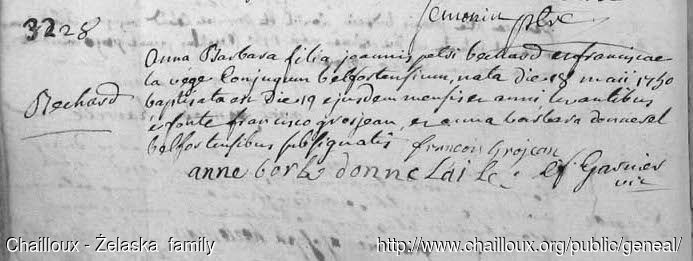 pbr
3228
Anna Barbara filia joannis petri bechard et franciscae
la vége Conjugum belfortensium, nata die 18 maii 1750
Bechard
baptisata est Die 19 ejusdem mensis et anni, levantibus
è fonte francisco grosjean, et anna barbara donnesal
belfortensibus subsignatis françois Grojean
anne borbe donne Lai
Garnier
vic
Chailloux - Żelaska family
http://www.chailloux.org/public/geneal/